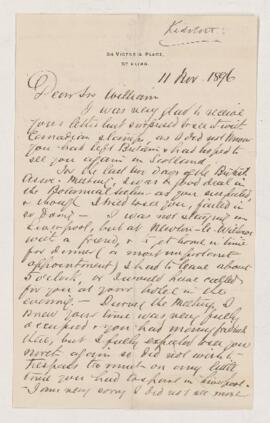 Kidston.
34 VICTORIA PLACE,
STIRLING.
11 Nov. 1896
Dear Sir William
I was very glad to receive
your letter but surprised to see it with
Canadian stamp as I did not know
you had left Britain & had hoped to
see you again in Scotland.
For the last two days of the British
Assoc. Meeting, I was a good deal in
the Botanical Section as you suggested
& though I tried to see you, failed in
so doing — I was not staying in
Liverpool, but at Newton-le-Willows
with a friend, & to get home in time
for dinner (a most important
appointment) I had to leave about
5 o'clock, or I would have called
for you at your hotel in the
evening. — During the Meeting I
knew your time was very fully
occupied & you had many friends
there, but I fully expected to see you
North again so did not wish to
trespass too much on any little
time you had to spare in Liverpool.
I am very sorry I did not see more